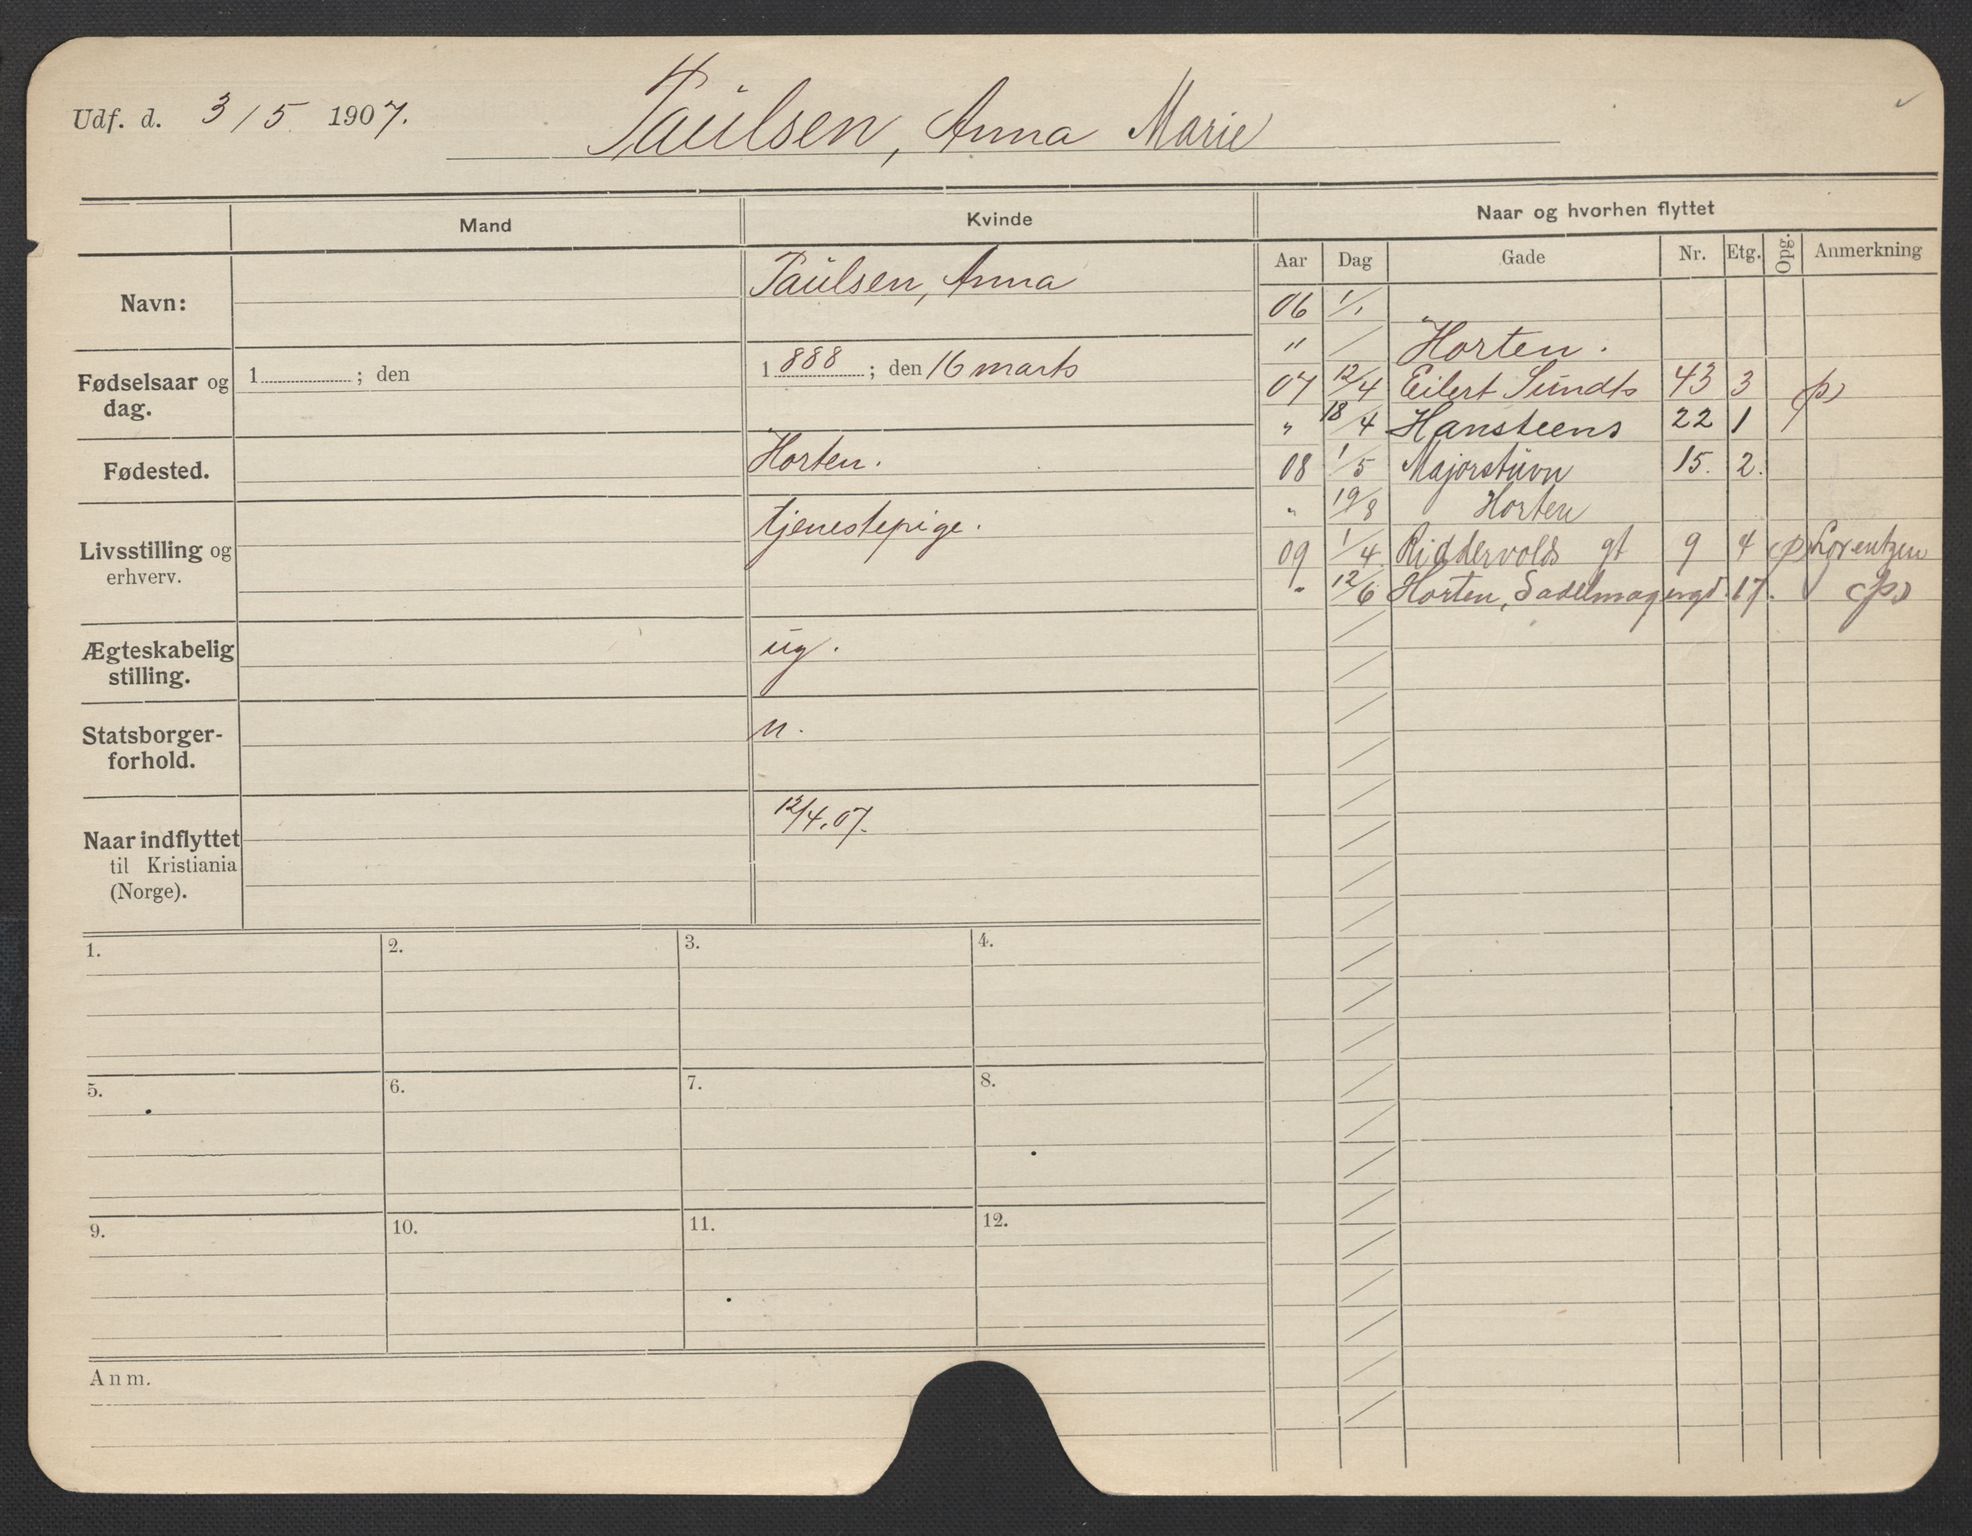 Udf. d. 3/5 1907. Paulsen, Anna Marie
Mand Kvinde Naar og hvorhen flyttet
Aar Dag Gade Nr. Etg. Opg. Anmerkning
Navn: Paulsen, Anna
Fødselsaar og dag. 1 ; den 1888 ; den 16 marts
Fødested. Horten.
Livsstilling og erhverv. tjenestepige.
Ægteskabelig stilling. ug.
Statsborgerforhold. n.
Naar indflyttet til Kristiania (Norge). 12/4.07.
06 1/1
" Horten.
07 12/4 Eilert Sundts 43 3 (p)
" 18/4 Hansteens 22 1
08 1/5 Majorstuvn 15. 2.
" 19/8 Horten
09 1/4 Riddervolds gt 9 4 (p) Lorentzen
" 12/6 Horten, Sadelmagergd. 17. (p)
1. 2. 3. 4.
5. 6. 7. 8.
9. 10. 11. 12.
Anm.